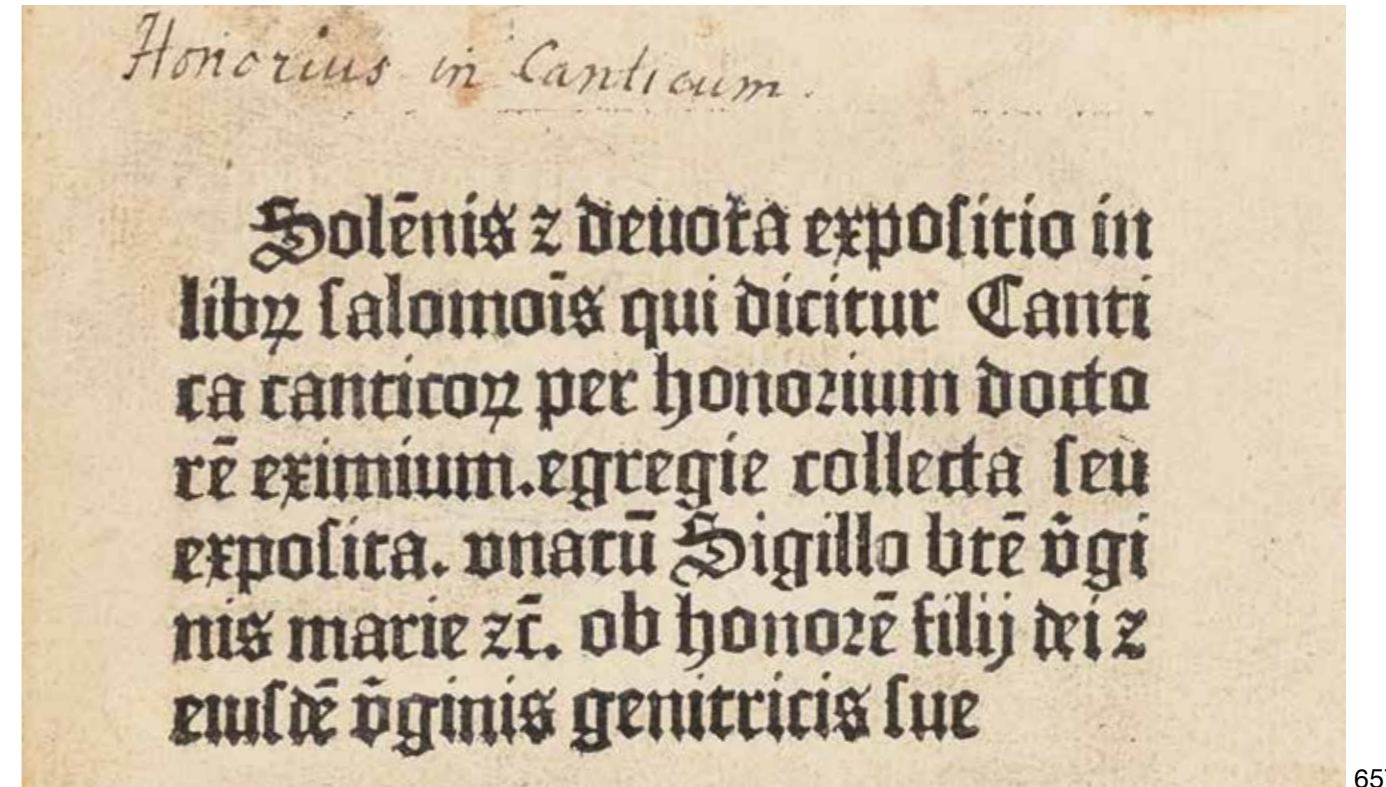 Honorius in Canticum.
Solēnis ⁊ deuota expoſitio in
libꝝ ſalomoīs qui dicitur Canti
ca canticoꝝ per honoꝛium docto
rē eximium.egregie collecta ſeu
expoſita. vnacū Sigillo btē v̄gi
nis marie ⁊c̄. ob honoꝛē filij dei ⁊
eiuſdē v̄ginis genitricis ſue
657